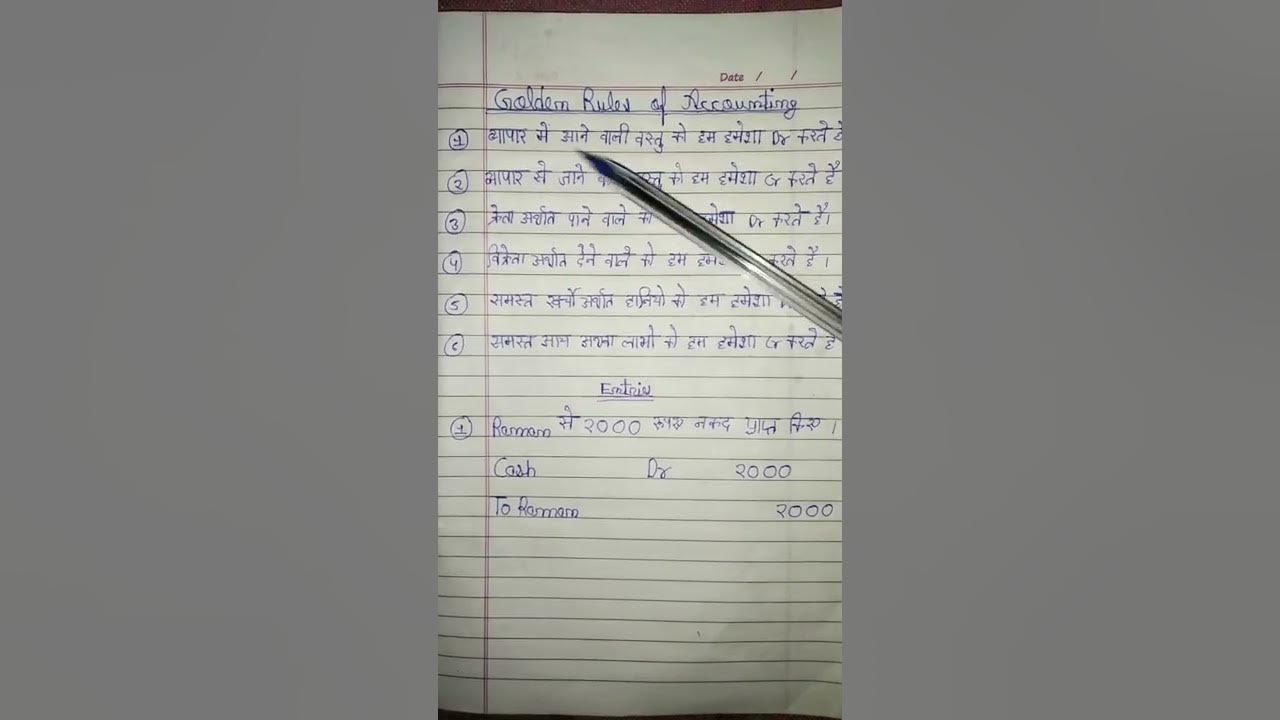 Date / /
Golden Rules of Accounting
① व्यापार में आने वाली वस्तु को हम हमेशा Dr करते है
② व्यापार से जाने को हम हमेशा Cr करते है
③ क्रेता अर्थात पाने वाले को Dr करते है।
④ विक्रेता अर्थात देने वाले को हम करते है।
⑤ समस्त खर्चो अर्थात हानियो को हम हमेशा
⑥ समस्त आय अथवा लाभो को हम हमेशा Cr करते है
Entries
① Raman से २००० रूपए नकद प्राप्त किए।
Cash Dr २०००
To Raman २०००